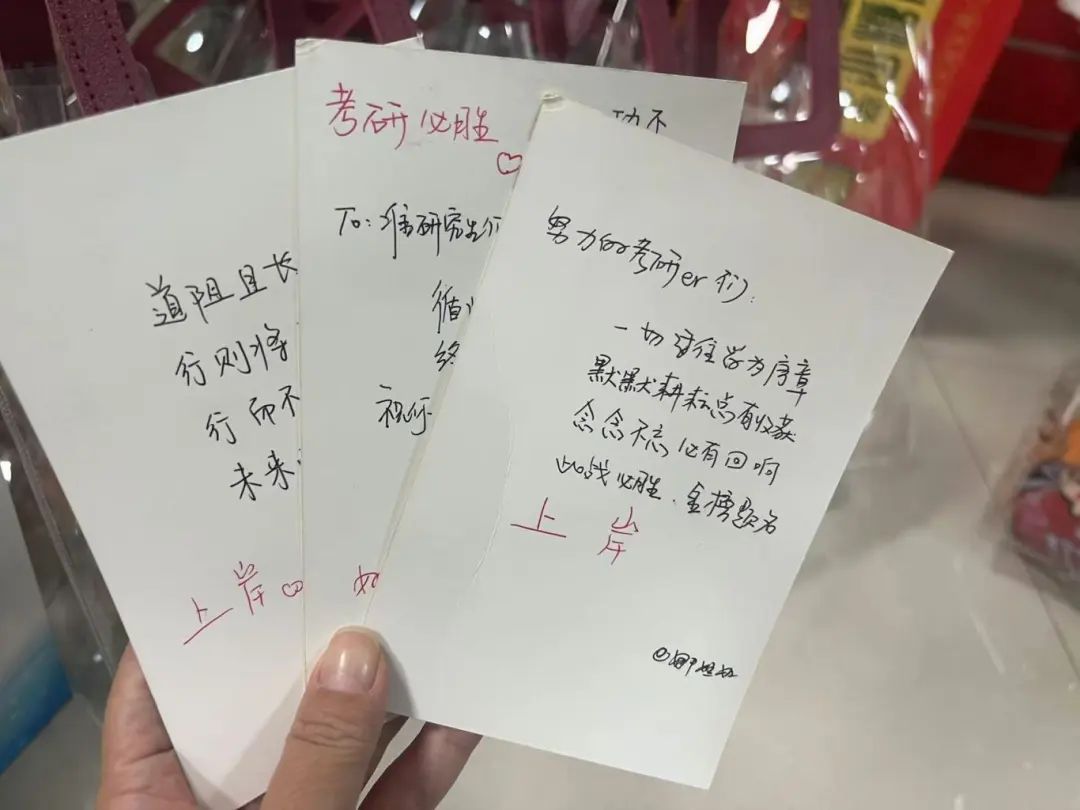 道阻且长
行则将
行而不
未来
上岸
考研必胜
功不
To:准研究生们
循
终
祝你
努力的考研er们:
一切过往皆为序章
默默耕耘总有收获
念念不忘必有回响
此战必胜.金榜题名
上岸